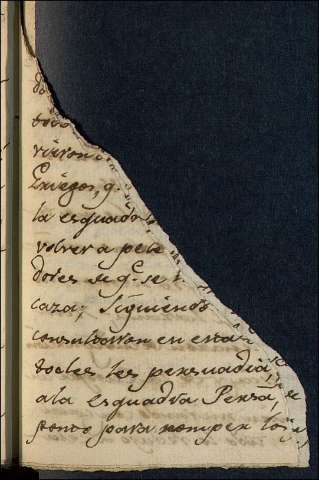 do
todo
vieron
Griegos, q.
la esquadr
volver a pele
dores de q.e se
caza; Siguiendo
consultaron en esta
tocles les persuadia,
a la esquadra Persa,
ponto para romper los